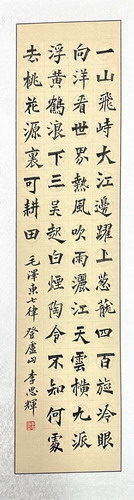 一山飛峙大江邊躍上葱蘢四百旋冷眼
向洋看世界熱風吹雨灑江天雲橫九派
浮黃鶴浪下三吳起白煙陶令不知何處
去桃花源裏可耕田 毛澤東七律登廬山 李思輝